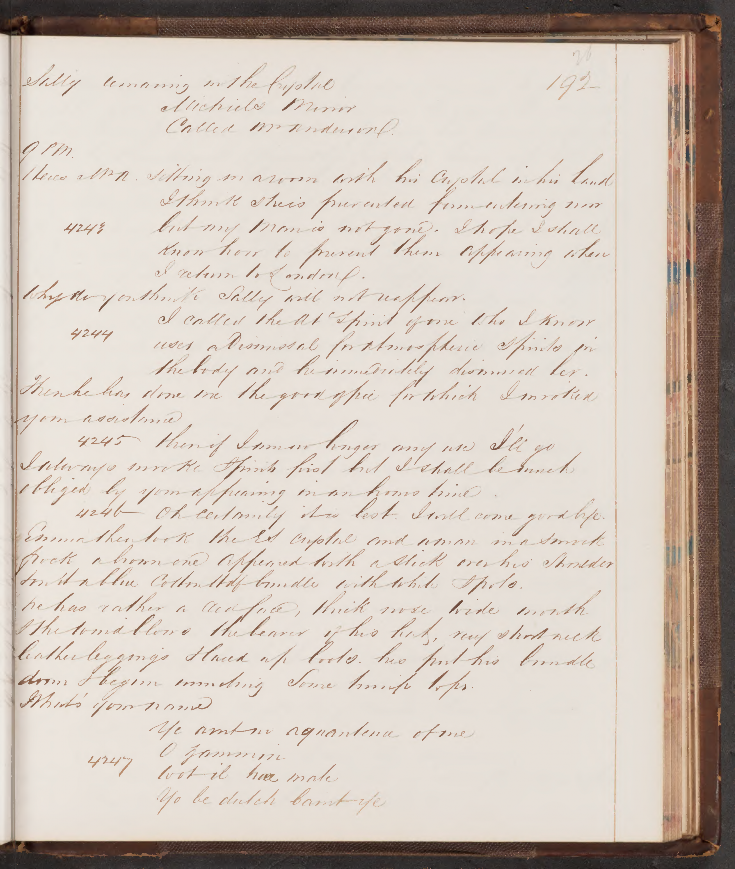 192
Sally remaining in the Crystal
Michiels Mirror
Called Mr Anderson.
9 PM.
There's Mr A. sitting in a room with his Crystal in his hand
I think she is prevented from entering now
4243 but my man is not gone. I hope I shall
know how to prevent them appearing when
I return to London.
Why do you think Sally will not reappear.
I called the Spirit of one who I know
4244 uses a Dismissal for Atmospheric Spirits in
the body and he immediately dismissed her.
Then he has done me the good office for which I invoked
your assistance
4245 then if I am no longer any use I'll go
I always invoke Spirits first but I shall be much
obliged by your appearing in an hours time.
4246 Oh certainly it is best I will come good bye.
Emma then took the Crystal and a man in a smock
frock a brown one appeared with a stick over his shoulder
and a blue cotton bundle with white spots.
he has rather a red face, thick nose wide mouth
& the wind blows the of his hat, very short neck
leather leggings & laced up boots. has put his bundle
down & begun munching some turnip tops.
What's your name
Ye aint no aquantence of me
4247 O gammin
wot il hee mate
Yo be dutch baint ye